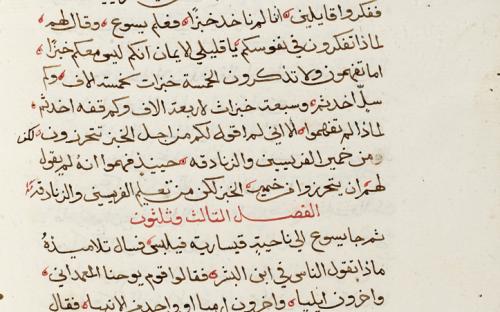 ففكروا قايلين اننا لم ناخذ خبزًا ففعلم يسوع وقال لهم
لماذا تفكرون في نفوسكم يا قليلي الايمان انكم ليس معكم خبزًا
اما تفهمون ولا تذكرون الخمسة خبزات لخمسة الاف وكم
سلًا اخذتم وسبعة خبزات لاربعة الاف وكم قفه اخذتم
لماذا لم تفهموا لاني لم اقول لكم من اجل الخبز تتحرزون لكن
من خمير الفريسيين والزنادقه حينيذٍ فهموا انه لم يقول
لهم ان يتحرزوا من خمير الخبز لكن من تعليم الفريسين والزنادقة
الفصل الثالث وثلثون
ثم جا يسوع الى ناحية قيسارية فيلبس فسال تلاميذهُ
ماذا تقول الناس في ابن البشر فقالوا قوم يوحنا المعمداني
واخرون ايليا واخرون ارميا او واحد من الانبيا فقال